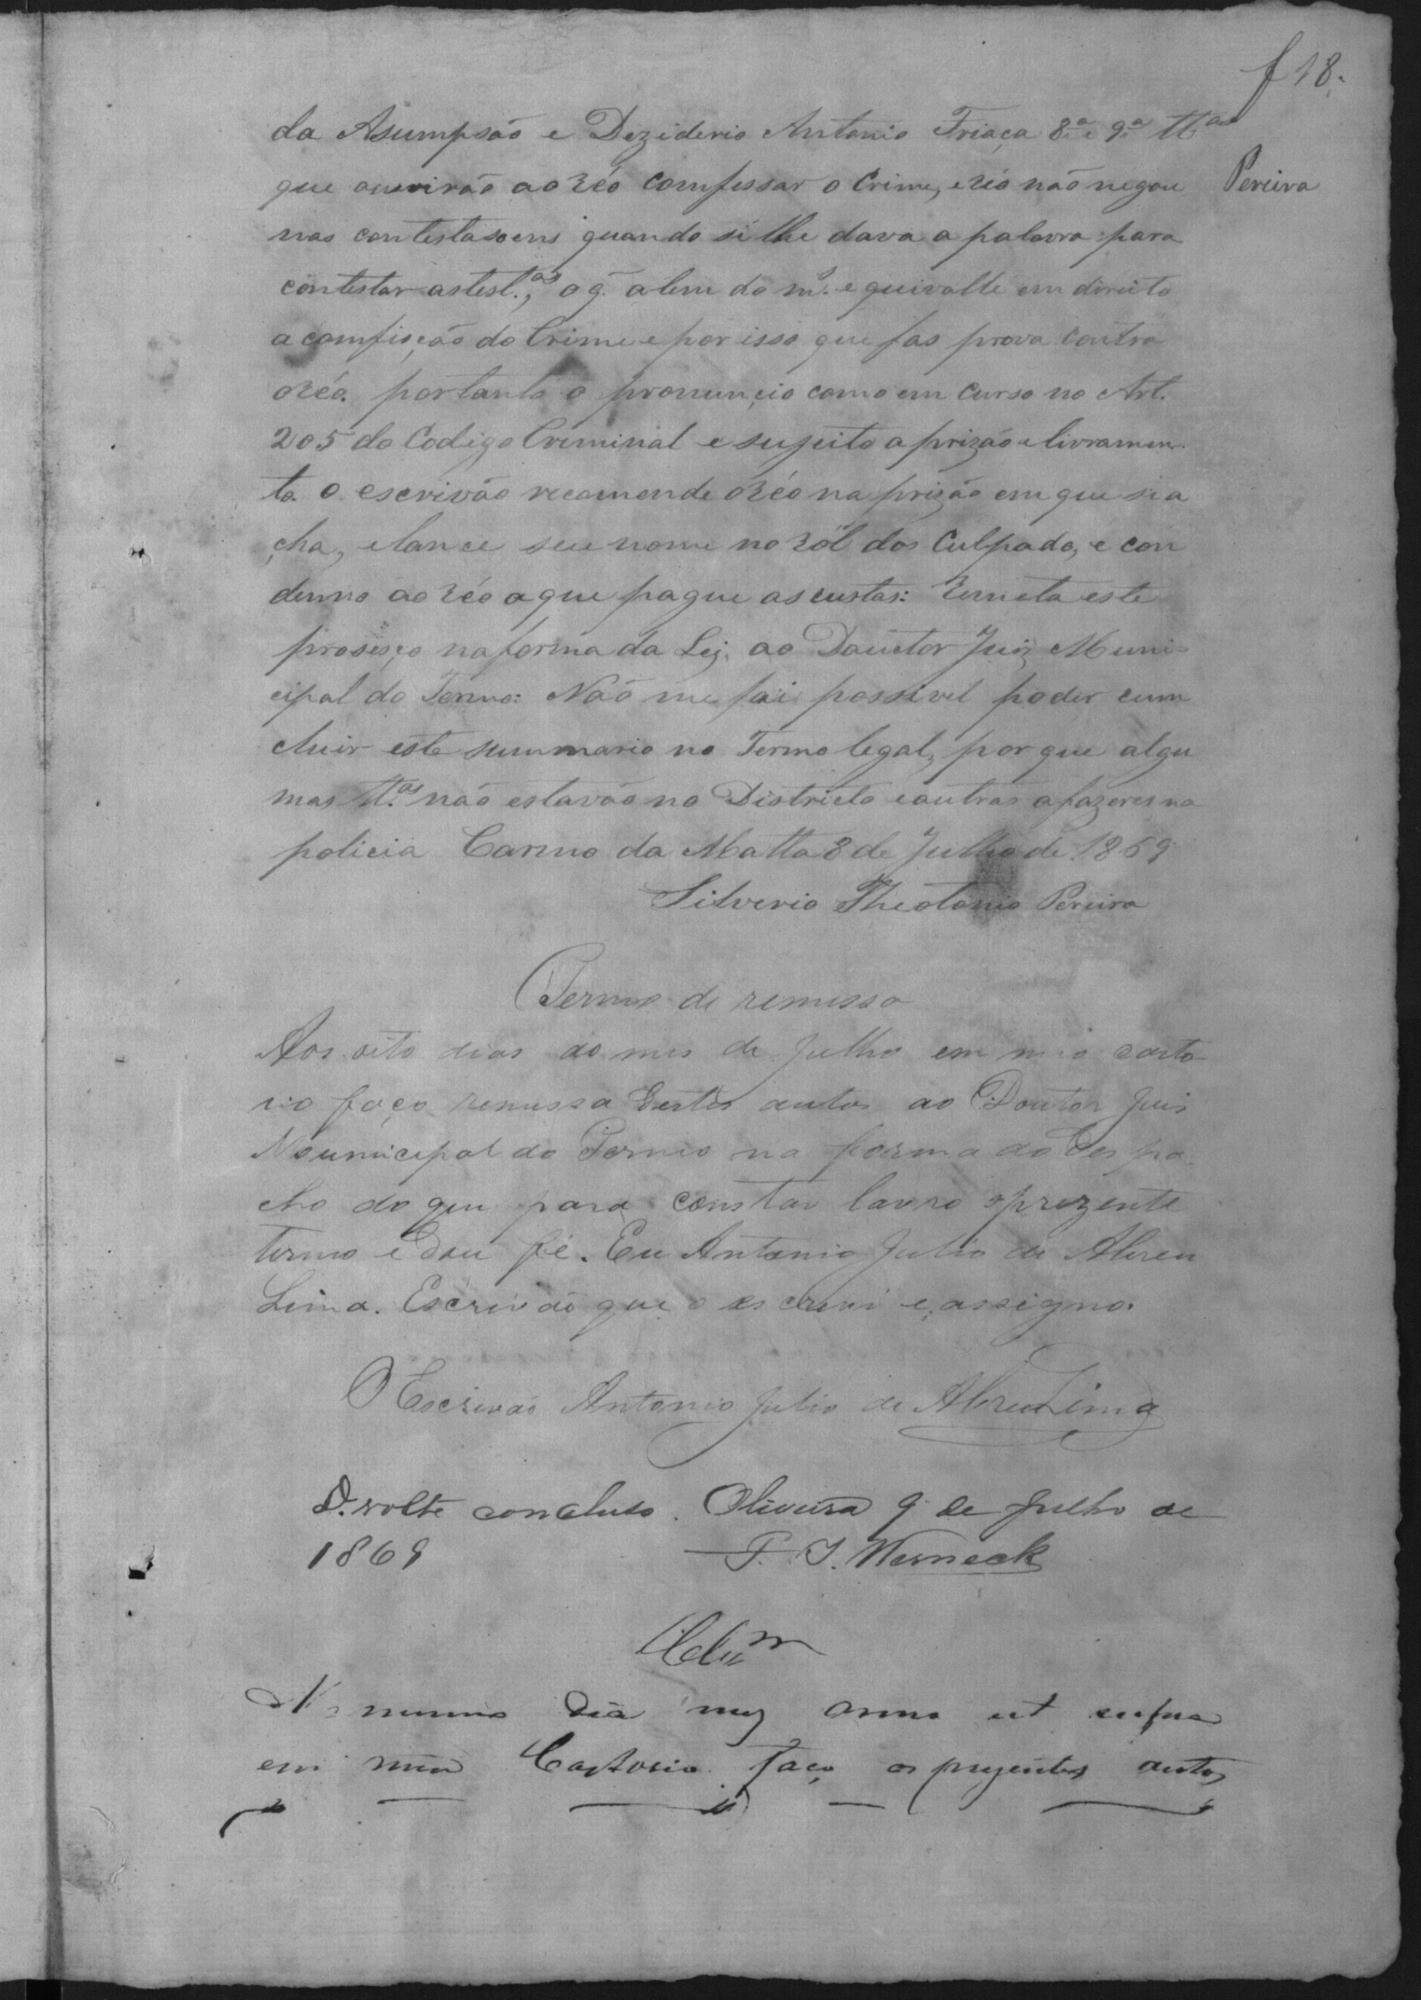 f 18.
da Asumpsão e Deziderio Antonio Friaça 8ª e 9ª ttas
Pereira
que ouvirão ao Réo comfessar o Crime, e Réo não negou
nas contestasoens quando si lhe dava a palavra para
contestar as test.as, o q. alem do m.º equivalle em direito
a comfisção do Crime e por isso que fas prova contra
o Réo. portanto o pronuncio como em curso no Art.
205 do Codigo Criminal e sujeito a prizão e livramen-
to o escrivão recomende o Réo na prizão em que si a
cha, e lance seu nome no Ról dos Culpado, e con
demno ao Réo a que pague as custas: Remeta este
prosesço na forma da Lej. ao Douctor Juiz Muni-
cipal do Termo: Não me foi possivel poder cum
cluir este summario no Termo legal, por que algu
mas tt.as não estavão no Districto e outras afazeres na
policia Carmo da Matta 8 de Julho de 1869
Silverio Theotonio Pereira
Termo de remessa
Aos oito dias do mes de Julho em meo carto
rio faço remessa destes autos ao Doutor Juis
Municipal do Termo na forma do Despa
cho do que para constar lavro o prezente
termo e dou fé. Eu Antonio Julio de Abreu
Lima. Escrivão que o escrevi e assigno.
O Escrivão Antonio Julio de Abreu Lima
D. volte concluso. Oliveira 9 de Julho de
1869 F. I. Werneck
Clsm
No mesmo dia mez anno ut supra
em meu Cartorio faço os prezentes autos